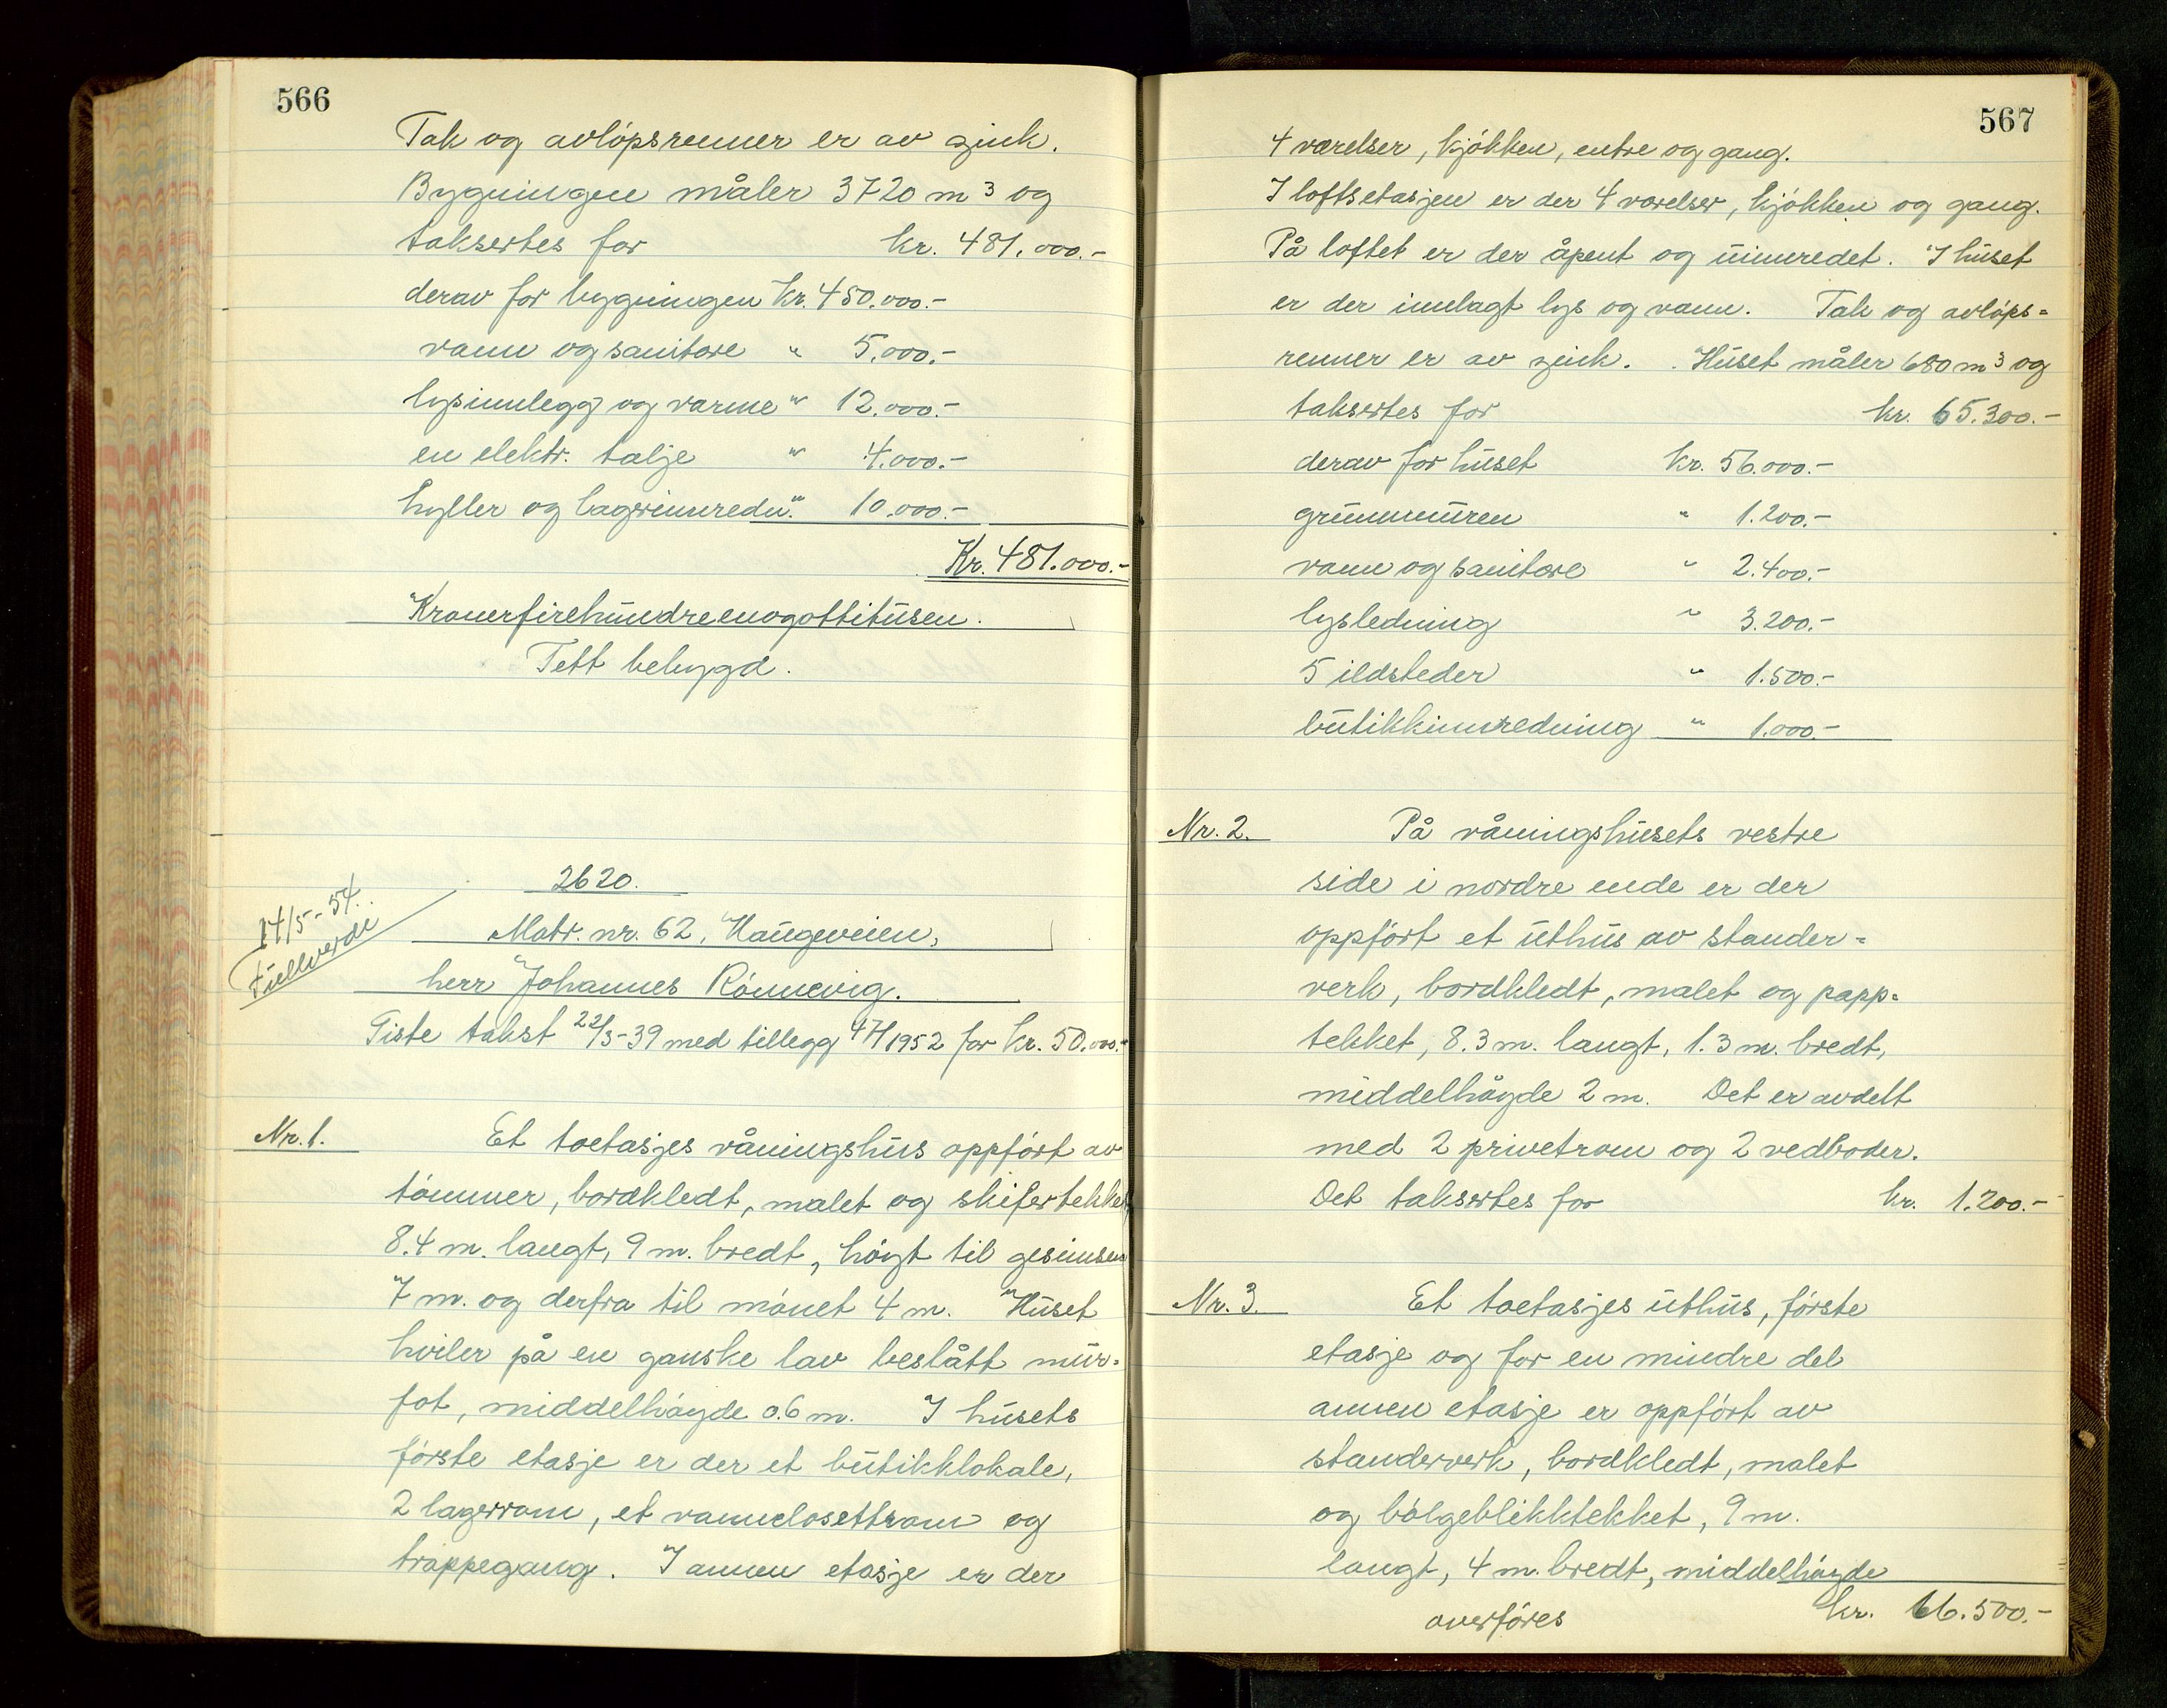 566
Tak og avløpsrenner er av zink.
Bygningen måler 3720 m³ og
taksertes for kr. 481.000.-
derav for bygningen kr. 450.000.-
vann og sanitære " 5.000.-
lysinnlegg og varme " 12.000.-
en elektr. talje " 4.000.-
hyller og lagerinnredn. " 10.000.-
Kr. 481.000.-
Kronerfirehundreenogottitusen.
Tett bebygd.
2620.
14/5-54.
Fullverdi
Matr. nr. 62, Haugeveien,
herr Johannes Rønnevig.
Siste takst 22/3-39 med tillegg 4/4 1952 for kr. 50.000.-
Nr. 1. Et toetasjes våningshus oppført av
tømmer, bordkledt, malet og skifertekket
8.4 m. langt, 9 m. bredt, høgt til gesimsen
7 m. og derfra til mønet 4 m. Huset
hviler på en ganske lav beslått mur-
fot, middelhøyde 0.6 m. I husets
første etasje er der et butikklokale,
2 lagerrom, et vannclosettrom og
trappegang. I annen etasje er der
567
4 værelser, kjøkken, entre og gang.
I loftsetasjen er der 4 værelser, kjøkken og gang.
På loftet er der åpent og uinnredet. I huset
er der innlagt lys og vann. Tak og avløps=
renner er av zink. Huset måler 680 m³ og
taksertes for kr. 65.300.-
derav for huset kr. 56.000.-
grunnmuren " 1.200.-
vann og sanitære " 2.400.-
lysledning " 3.200.-
5 ildsteder " 1.500.-
butikkinnredning " 1.000.-
Nr. 2. På våningshusets vestre
side i nordre ende er der
oppført et uthus av stander=
verk, bordkledt, malet og papp=
tekket, 8.3 m. langt, 1.3 m. bredt,
middelhøyde 2 m. Det er avdelt
med 2 privetrom og 2 vedboder.
Det taksertes for kr. 1.200.-
Nr. 3. Et toetasjes uthus, første
etasje og for en mindre del
annen etasje er oppført av
standerverk, bordkledt, malet
og bølgeblikktekket, 9 m.
langt, 4 m. bredt, middelhøyde
overføres kr. 66.500.-